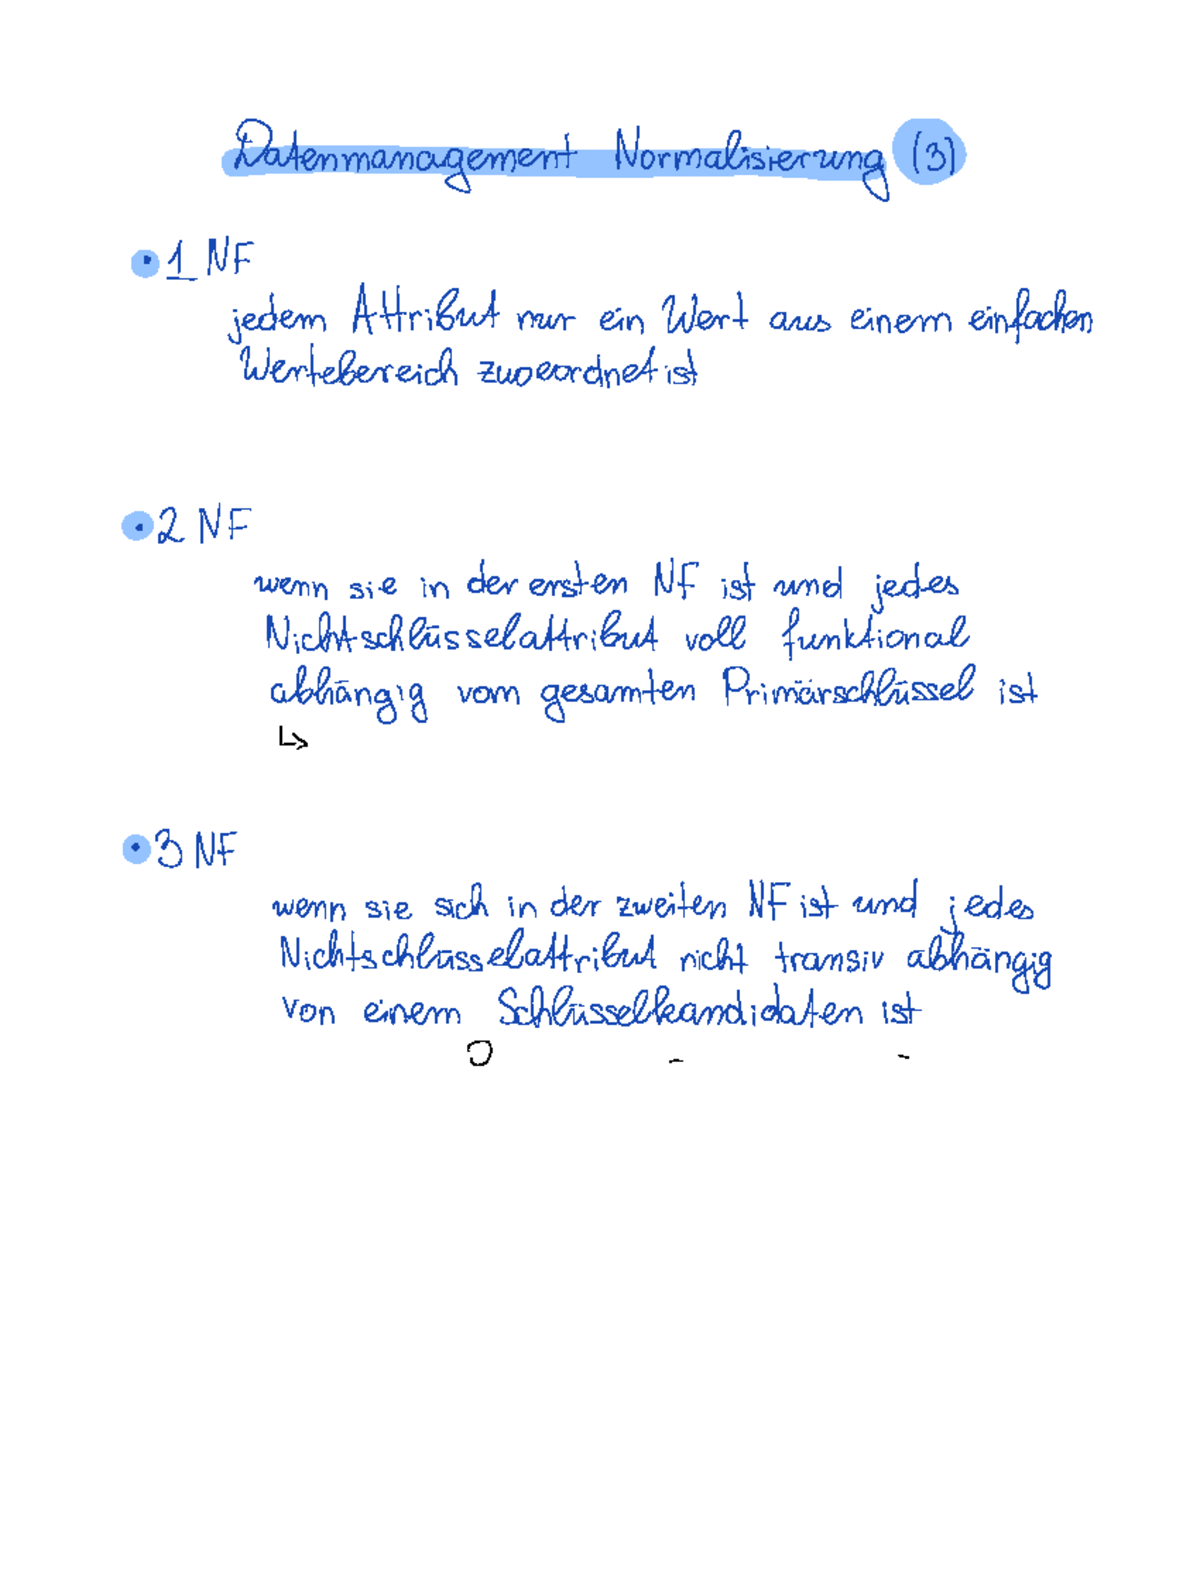 Datenmanagement Normalisierung (3)
• 1 NF
jedem Attribut nur ein Wert aus einem einfachen
Wertebereich zugeordnet ist
• 2 NF
wenn sie in der ersten NF ist und jedes
Nichtschlüsselattribut voll funktional
abhängig vom gesamten Primärschlüssel ist
↳
• 3 NF
wenn sie sich in der zweiten NF ist und jedes
Nichtschlüsselattribut nicht transiv abhängig
von einem Schlüsselkandidaten ist